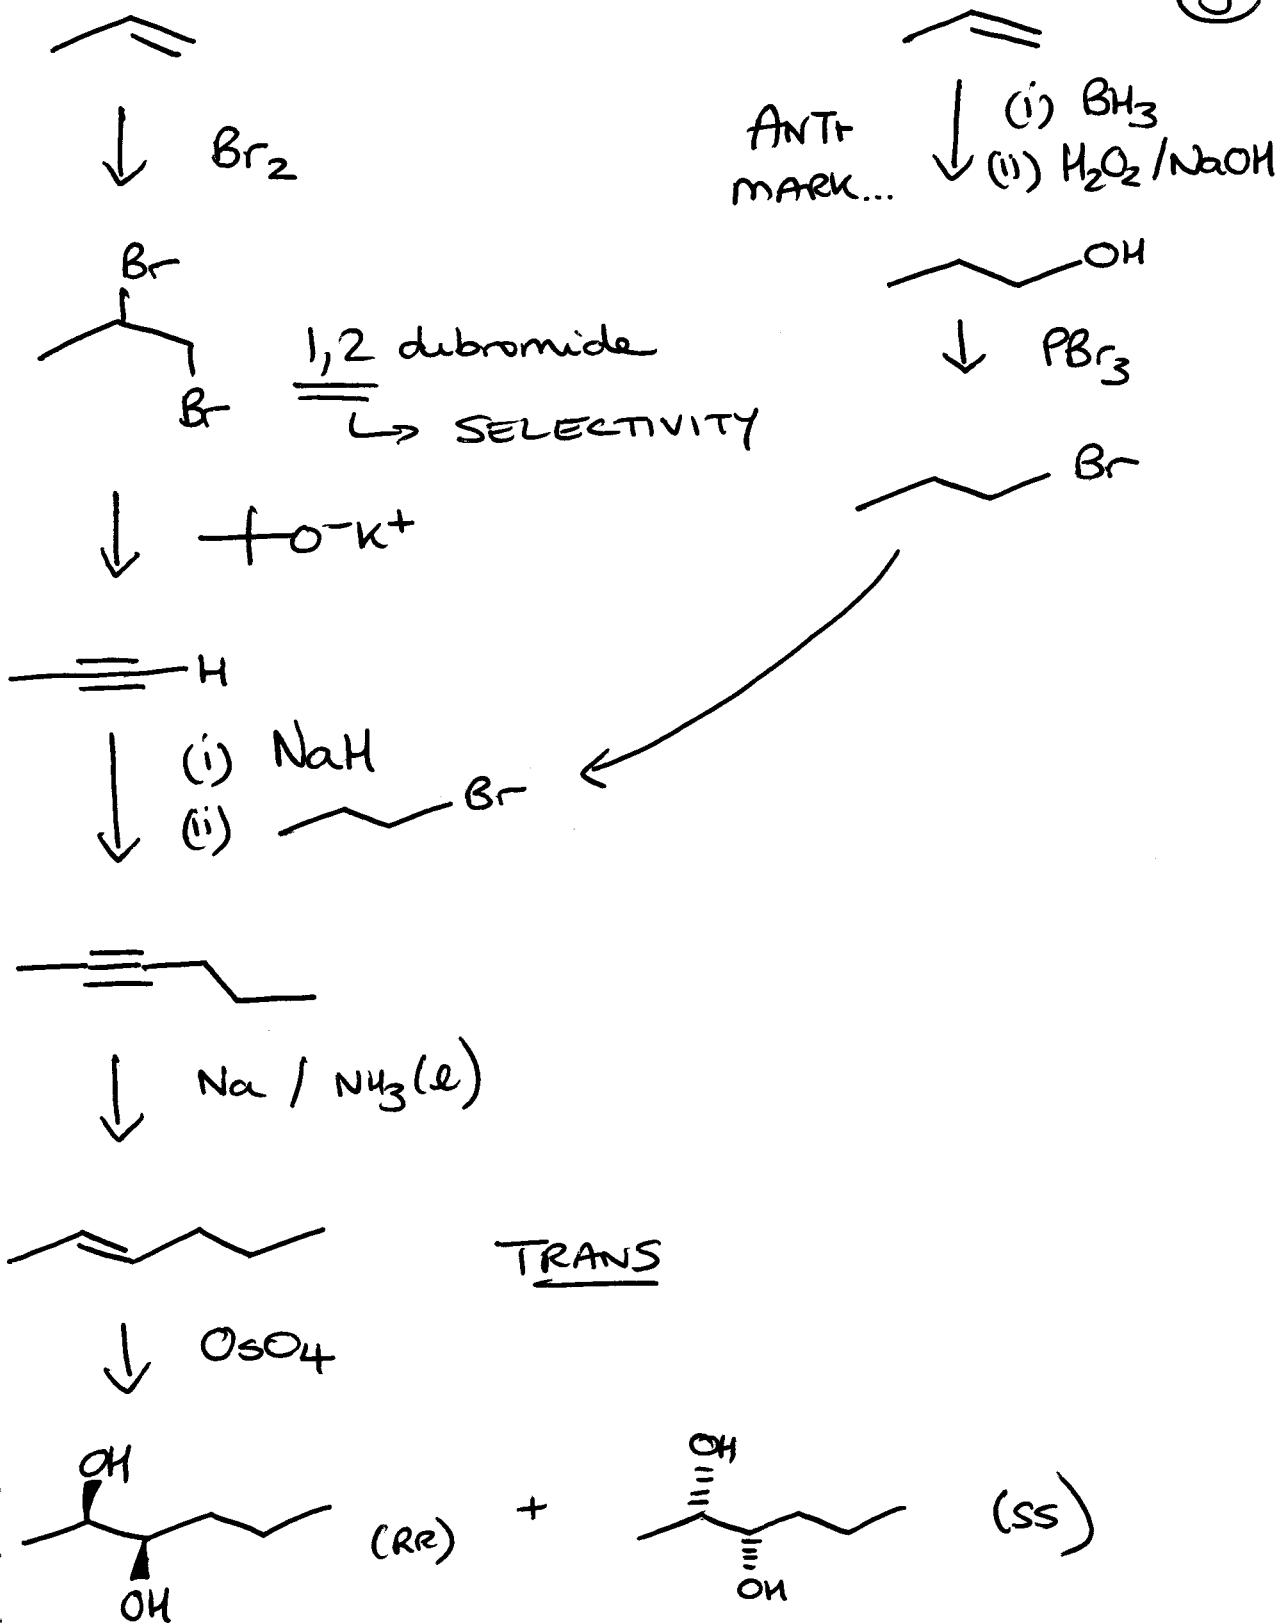 Br2
Br
Br
1,2 dibromide
↳ SELECTIVITY
O-K+
H
(i) NaH
(ii) Br
Na / NH3(l)
TRANS
OsO4
OH
OH
(RR)
+
OH
OH
(SS)
ANTI
MARK...
(i) BH3
(ii) H2O2/NaOH
OH
PBr3
Br